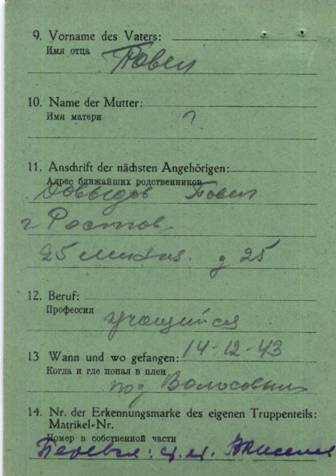 9. Vorname des Vaters:
Имя отца
Повел
10. Name der Mutter:
Имя матери
?
11. Anschrift der nächsten Angehörigen:
Адрес ближайших родственников
Повел
г Ростов
25 линия д 25
12. Beruf:
Профессия
учощийся
13 Wann und wo gefangen: 14-12-43
Когда и где попал в плен
под
14. Nr. der Erkennungsmarke des eigenen Truppenteils:
Matrikel-Nr.
Номер в собственной части